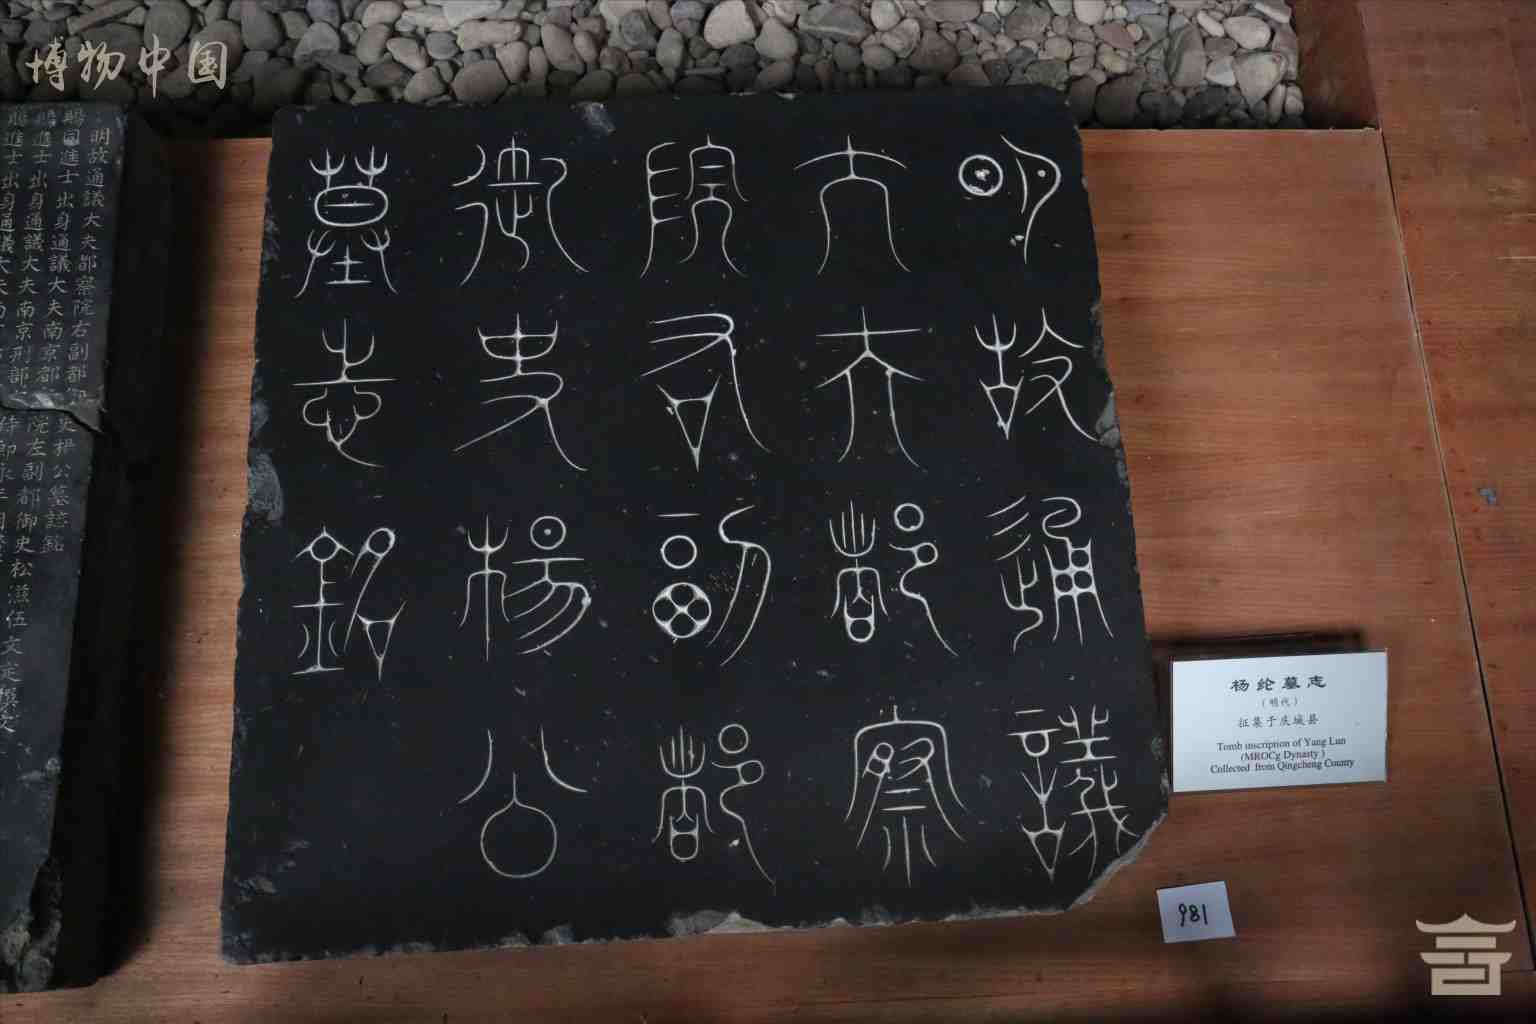 博物中国
明故通議
大夫都察
院右副都
御史楊公
墓志銘
明故通議大夫都察院右副都御史楊公墓誌銘
賜同進士出身通議大夫南京都
賜進士出身通議大夫南京刑部
院左副都御史松滋伍文定撰文
杨纶墓志
(明代)
征集于庆城县
Tomb inscription of Yang Lun
(MROCg Dynasty )
Collected from Qingcheng County
981